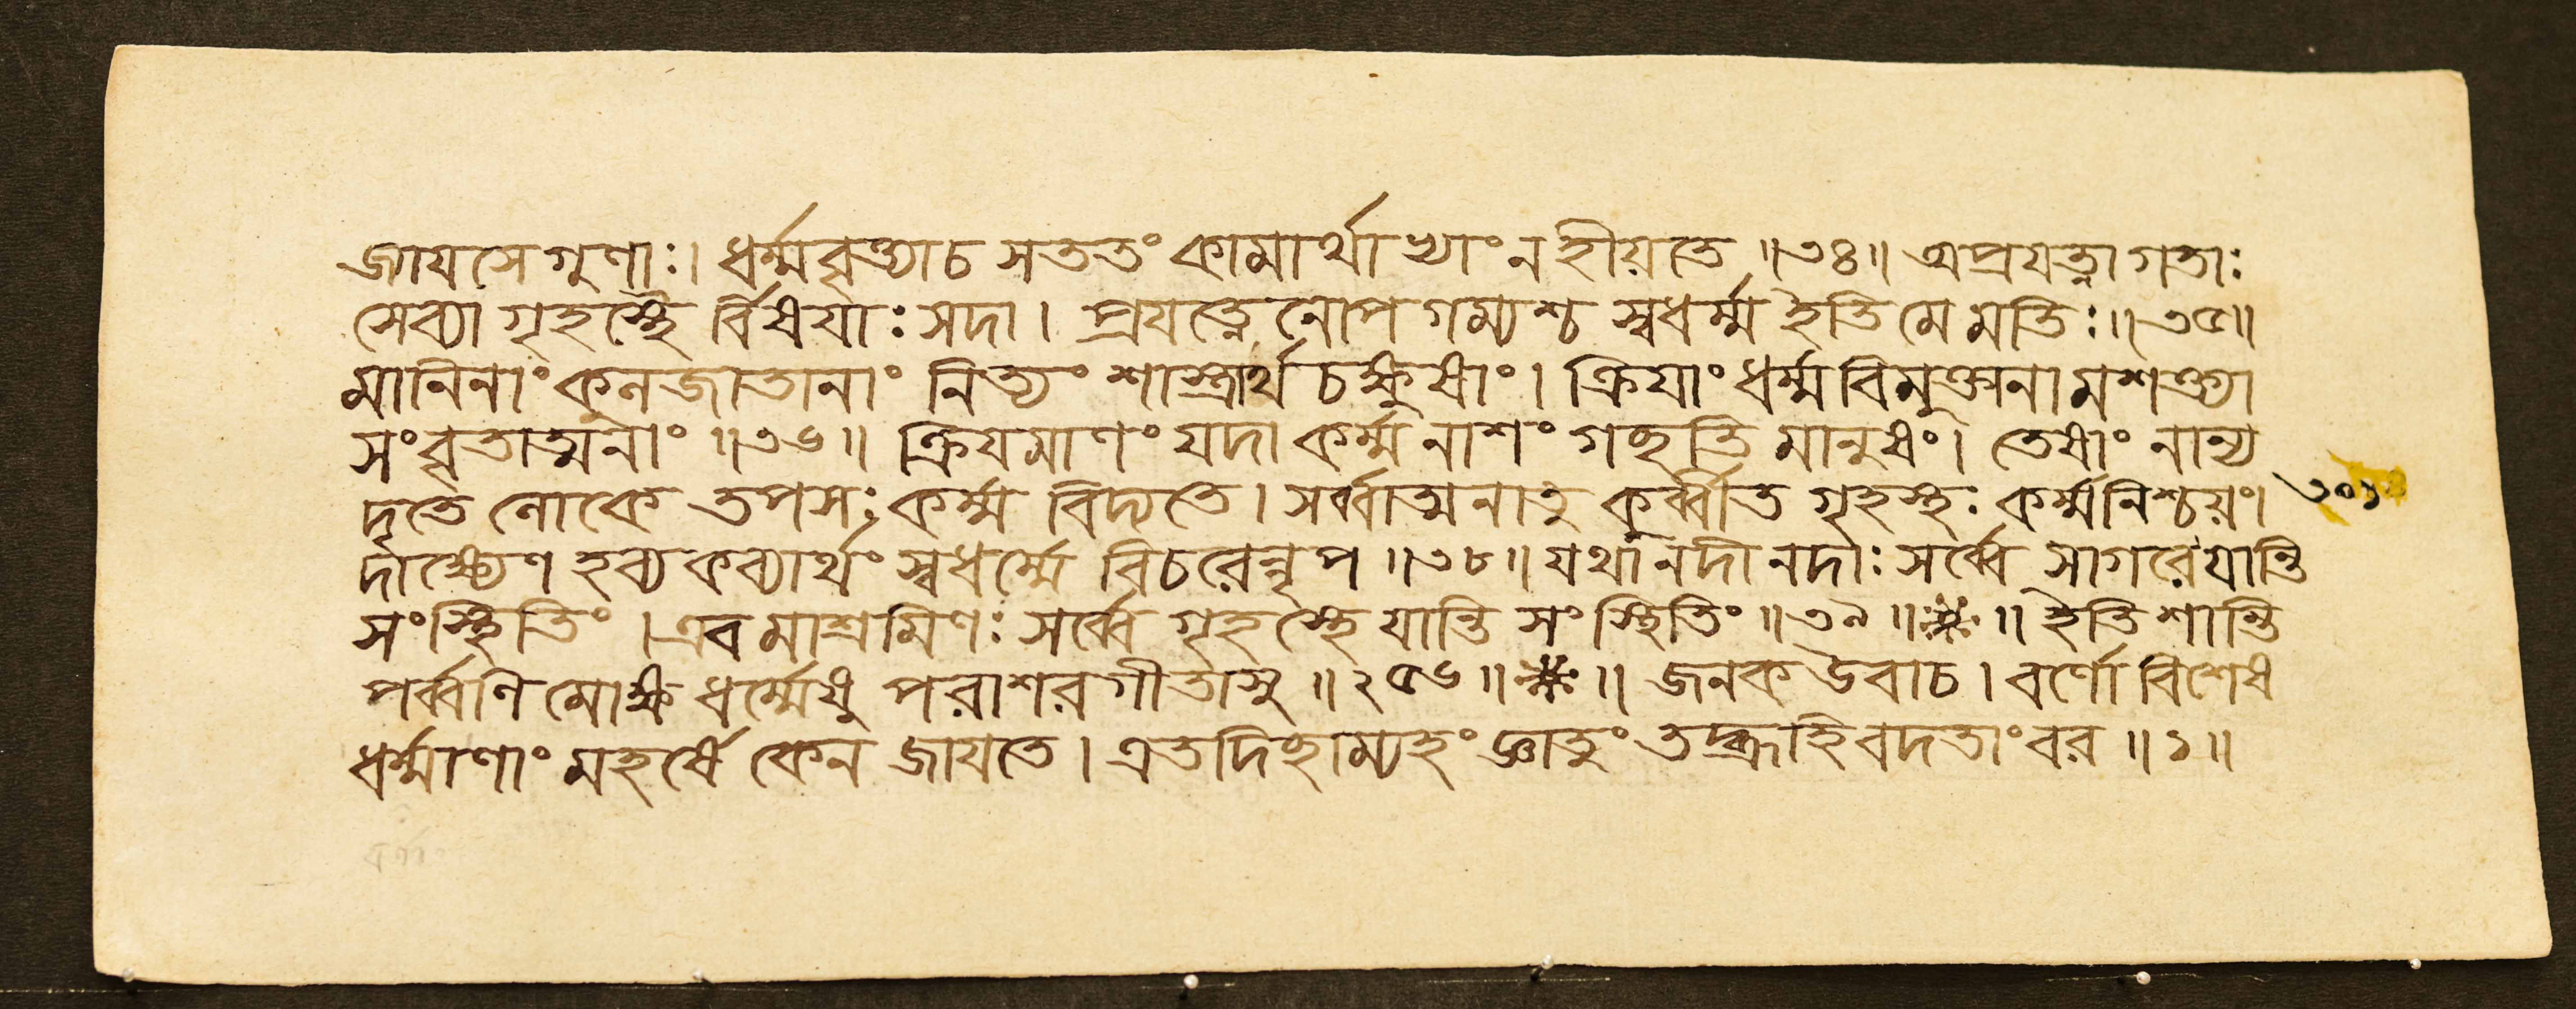 জায়সে গুণাঃ। ধর্ম্মবৃত্ত্যাচ সততং কামার্থাখ্যাং ন হীয়তে ॥৩৪॥ অপ্রযত্নাগতাঃ
সেব্যা গৃহস্থৈ র্বিষযাঃ সদা। প্রযত্নেনোপগম্যশ্চ স্বধর্ম্ম ইতি মে মতিঃ॥৩৫॥
মানিনাং কুলজাতানাং নিত্যং শাস্ত্রার্থচক্ষুষাং। ক্রিযাং ধর্ম্মবিমুক্তানামশক্ত্যা
সংবৃতাত্মনাং ॥৩৬॥ ক্রিযমাণং যদা কর্ম্ম নাশং গচ্ছতি মানুষং। তেষাং নান্য
দৃতে লোকে তপসঃ কর্ম্ম বিদ্যতে। সর্ব্বাত্মনাতু কুর্ব্বীত গৃহস্থঃ কর্ম্মনিশ্চয়ং। ৩০১
দাক্ষ্যেণ হব্যকব্যার্থং স্বধর্ম্মে বিচরেন্নৃপ ॥৩৮॥ যথা নদীনদাঃ সর্ব্বে সাগরে যান্তি
সংস্থিতিং। এবমাশ্রমিণঃ সর্ব্বে গৃহস্থে যান্তি সংস্থিতিং ॥৩৯॥ ॥ ইতি শান্তি
পর্ব্বণি মোক্ষধর্ম্মেষু পরাশরগীতাসু ॥২৫৬॥ ॥ জনক উবাচ। বর্ণো বিশেষ
ধর্ম্মাণাং মহর্ষে কেন জাযতে। এতদিচ্ছাম্যহং জ্ঞাতুং তদ্ব্রূহি বদতাং বর ॥১॥